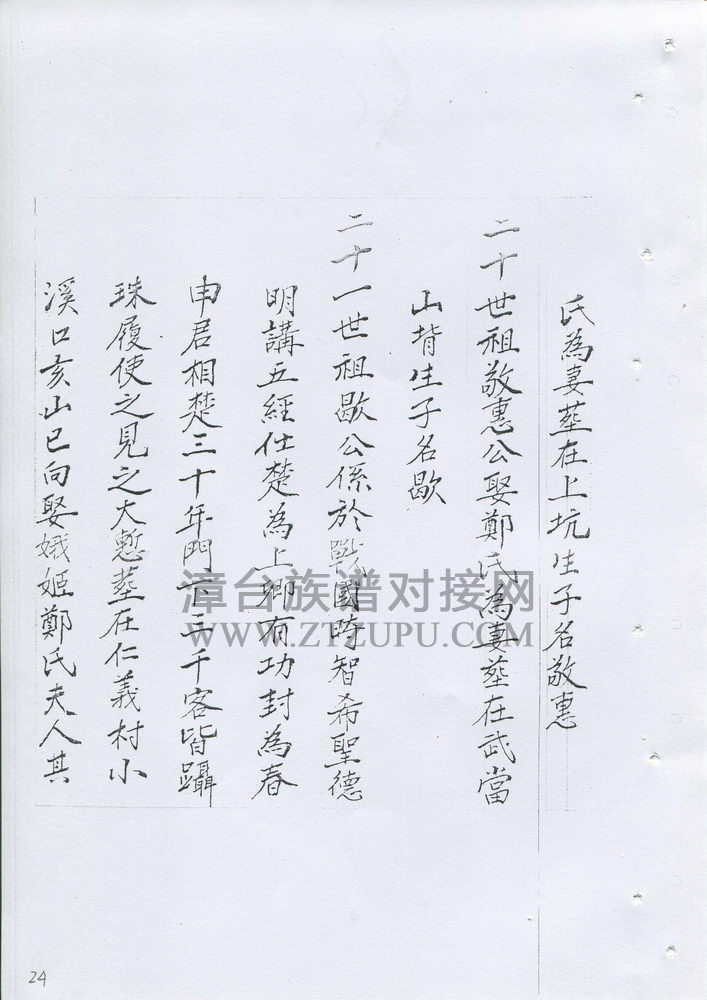 氏為妻塟在上坑生子名敬惠
二十世祖敬惠公娶鄭氏為妻塟在武當
山背生子名歇
二十一世祖歇公係於戰國時智希聖德
明講五經仕楚為上卿有功封為春
申君相楚三十年門下三千客皆躡
珠履使之見之大慙塟在仁義村小
溪口亥山巳向娶娥姬鄭氏夫人其
漳台族谱对接网
WWW.ZTZUPU.COM
24